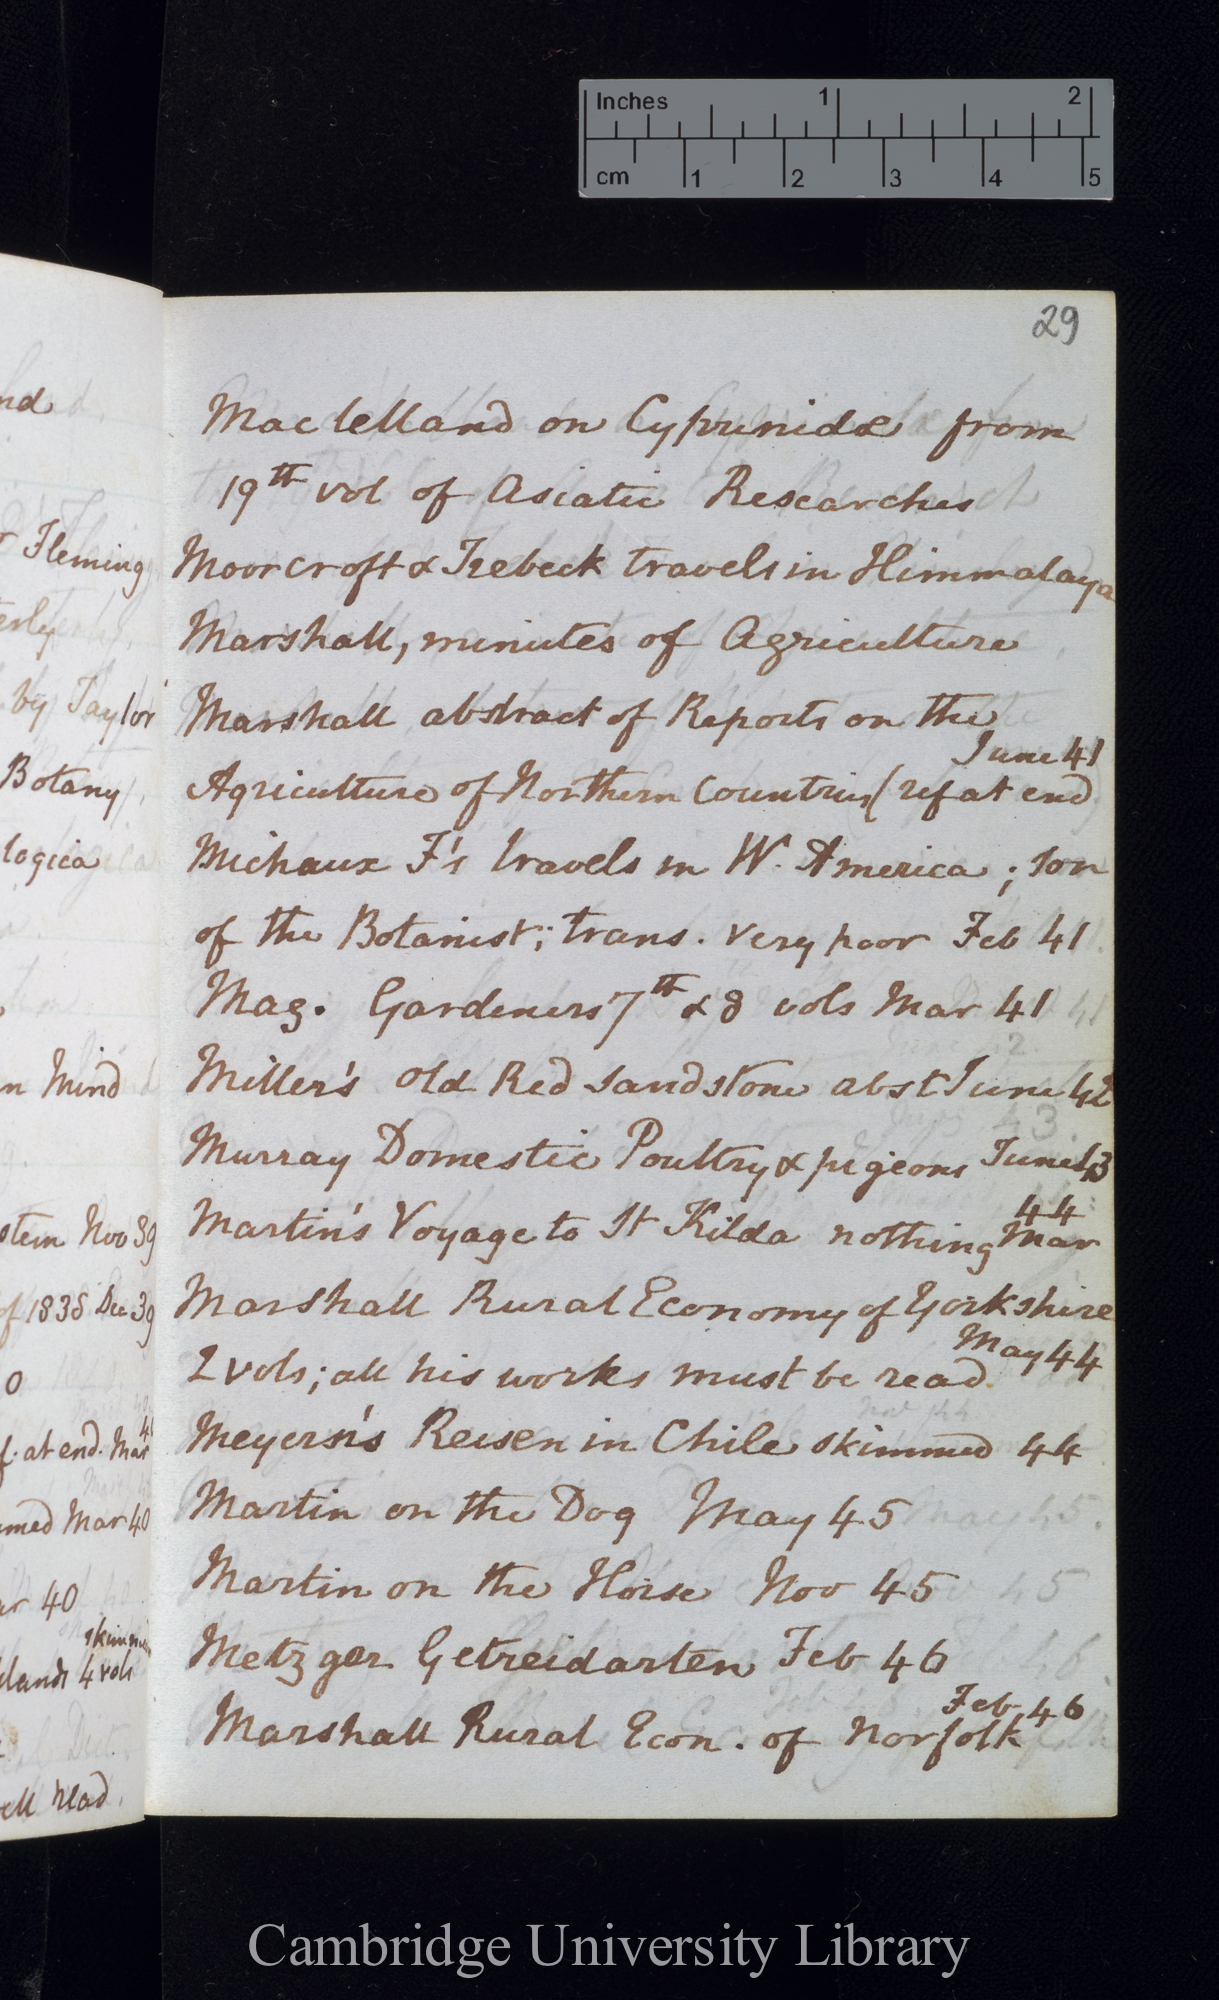 Inches 1 2
cm 1 2 3 4 5
29
Maclelland on Cyprinidæ from
19th vol of Asiatic Researches
Moorcroft & Trebeck travels in Himmalaya
Marshall, minutes of Agriculture
Marshall abstract of Reports on the
June 41
Agriculture of Northern Countries (ref at end
Michaux F's travels in W. America; son
of the Botanist; trans. very poor Feb 41
Mag. Gardeners 7th & 8 vols Mar 41
Miller's Old Red sandstone abst June 42
Murray Domestic Poultry & pigeons June 43
44
Martin's Voyage to St Kilda nothing Mar
Marshall Rural Economy of Yorkshire
May 44
2 vols; all his works must be read
Meyersi's Reisen in Chile skimmed 44
Martin on the Dog May 45
Martin on the Horse Nov 45
Metzger Getreidarten Feb 46
Feb 46
Marshall Rural Econ. of Norfolk
nd
Fleming
erly
by Taylor
Botany
logica
n Mind
stem Nov 39
of 1838 Dec 39
0
f. at end. Mar
med Mar 40
ar 40
skimm
lands 4 vols
ell read.
Cambridge University Library